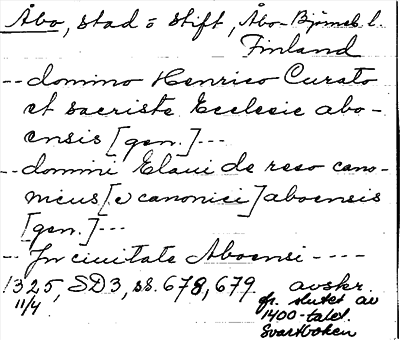 Åbo, stad o stift, Åbo-Björneb. l.
Finland
-- domino Henrico Curato
et sacriste Ecclesie abo-
ensis [gen.] ---
-- domini Elaui de reso cano-
nicus [e canonici] aboensis
[gen.] ---
-- In ciuitate Aboensi ----
1325, SD3, ss. 678, 679. avskr.
11/4 fr. slutet av
1400-talet.
Svartboken